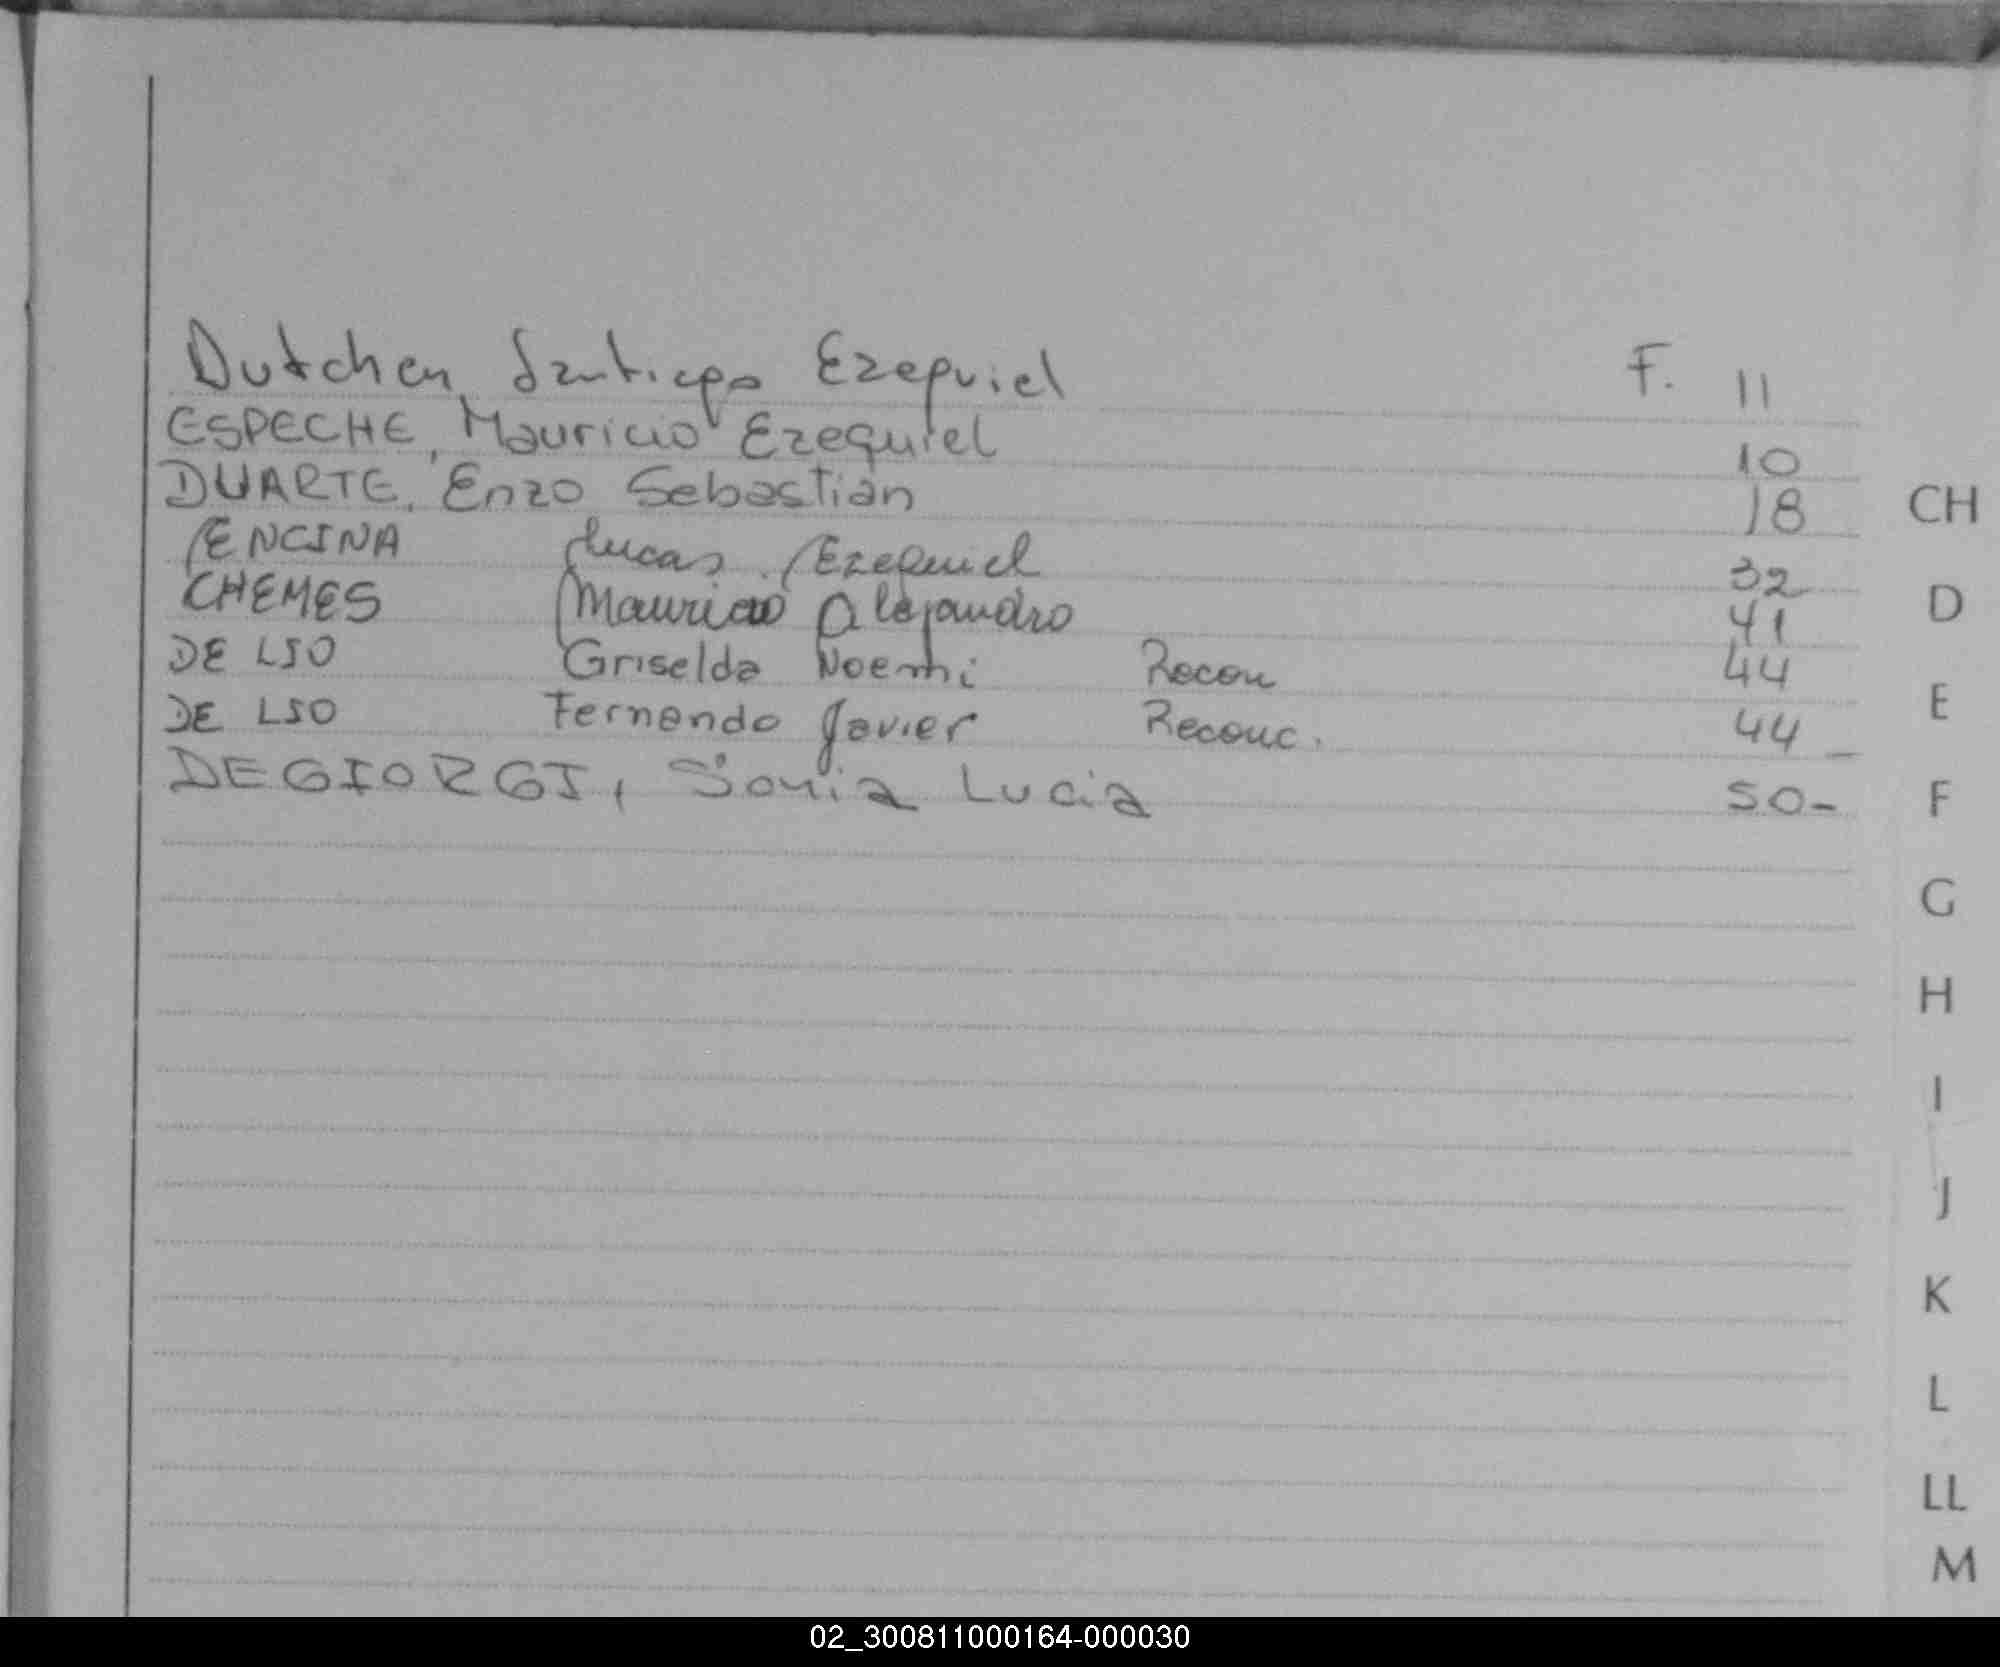 Dutchen Santiago Ezequiel F. 11
ESPECHE, Mauricio Ezequiel 10
DUARTE, Enzo Sebastian 18
ENCINA Lucas Ezequiel 32
CHEMES Mauricio Alejandro 41
DE LSO Griselda Noemi Recon 44
DE LSO Fernando Javier Reconc. 44
DEGIORGI, Sonia Lucia 50-
CH
D
E
F
G
H
I
J
K
L
LL
M
02_300811000164-000030